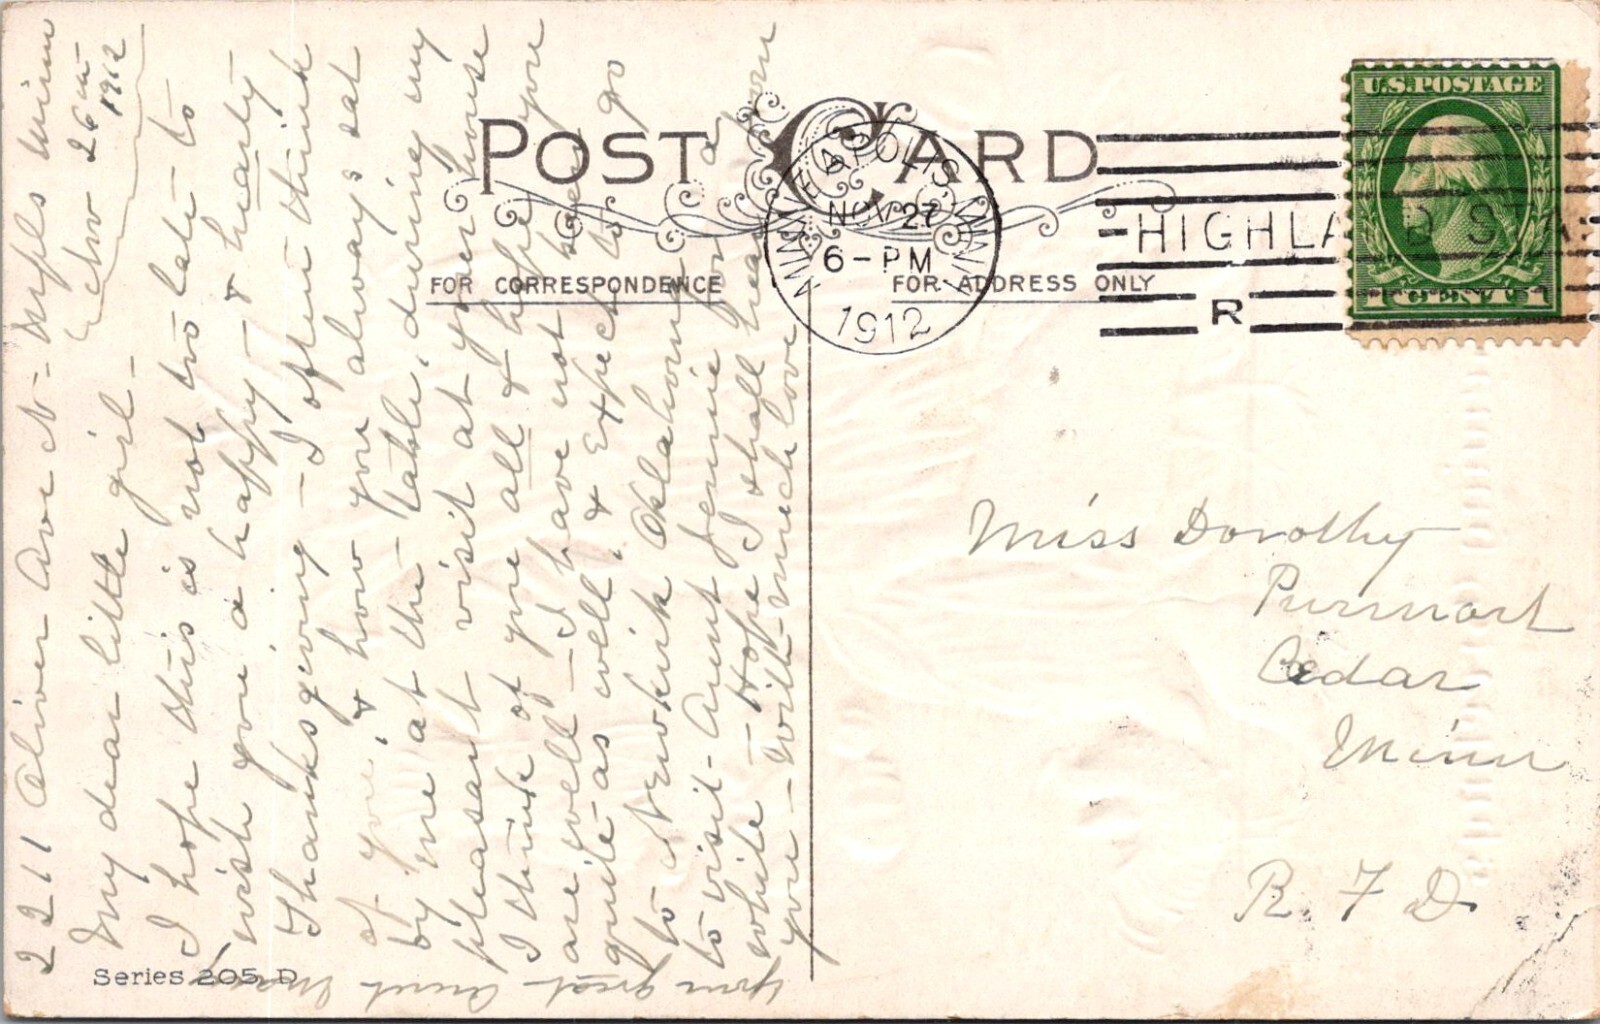 POST CARD
FOR CORRESPONDENCE
FOR ADDRESS ONLY
MINNEAPOLIS MINN
NOV 27
6-PM
1912
HIGHLAND STA.
R
U.S. POSTAGE
1 CENT 1
2211 Oliver Ave N- Mpls Minn
Nov 26th
1912
My dear little girl-
I hope this is not too late to
wish you a happy- & hearty
Thanksgiving - I often think
of you, & how you always sat
by me at the table, during my
pleasant visit at your house
I think of you all & hope you
are well - I have not been you
quite as well, & expect to go
to Oklahoma
to visit Aunt Jennie for a
while - Hope I shall hear from
you - with much love
your great Aunt Mary
Miss Dorothy
Purmort
Cedar
Minn
R. F D.
Series 205 D